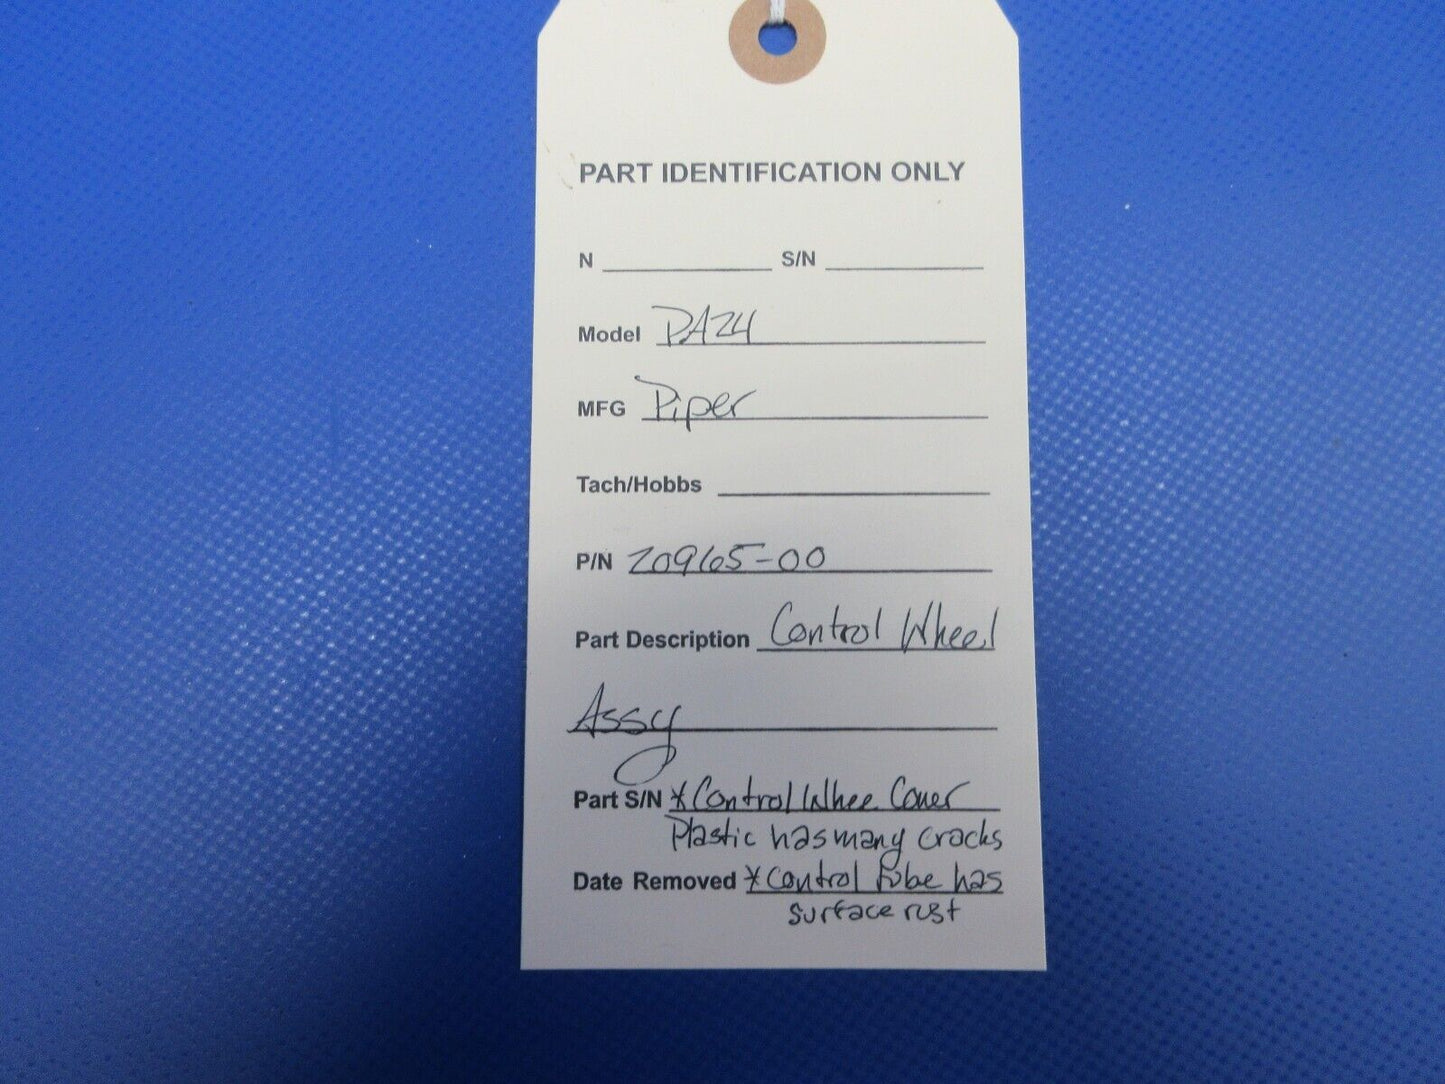 PART IDENTIFICATION ONLY
N S/N
Model PA24
MFG Piper
Tach/Hobbs
P/N 20965-00
Part Description Control Wheel
Assy
Part S/N *Control Whee Cover
Plastic has many cracks
Date Removed *Control tube has
surface rust